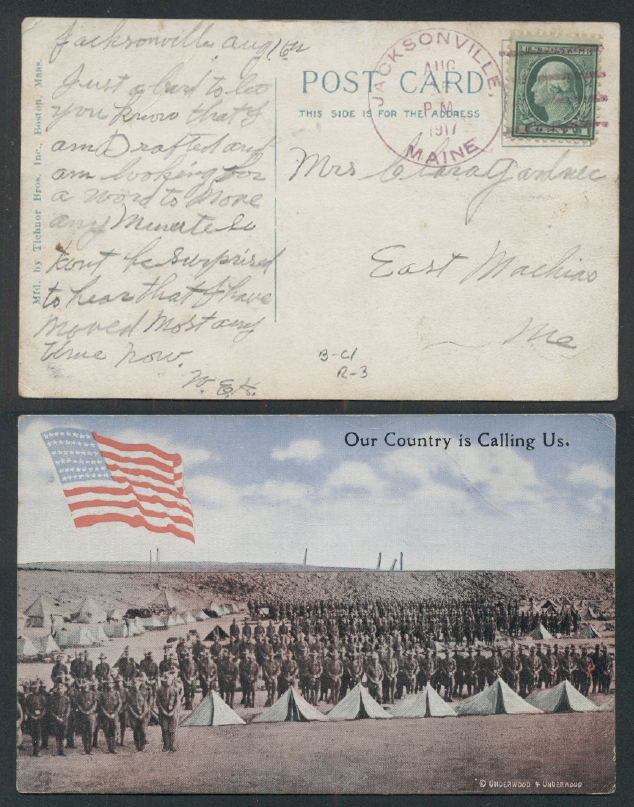 Jacksonville Aug 16th
Just a line to let
you know that I
am Drafted and
am looking for
a word to Move
any Minute So
Dont be Surprised
to hear that I have
Moved Most any
time Now.
W.E.K.
Mfd. by Tichnor Bros. Inc., Boston, Mass.
POST CARD
THIS SIDE IS FOR THE ADDRESS
JACKSONVILLE,
AUG
P.M.
1917
MAINE
U.S. POSTAGE
1 CENT 1
Mrs Clara Gardner
East Machias
Me
B-C1
R-3
Our Country is Calling Us.
© UNDERWOOD & UNDERWOOD